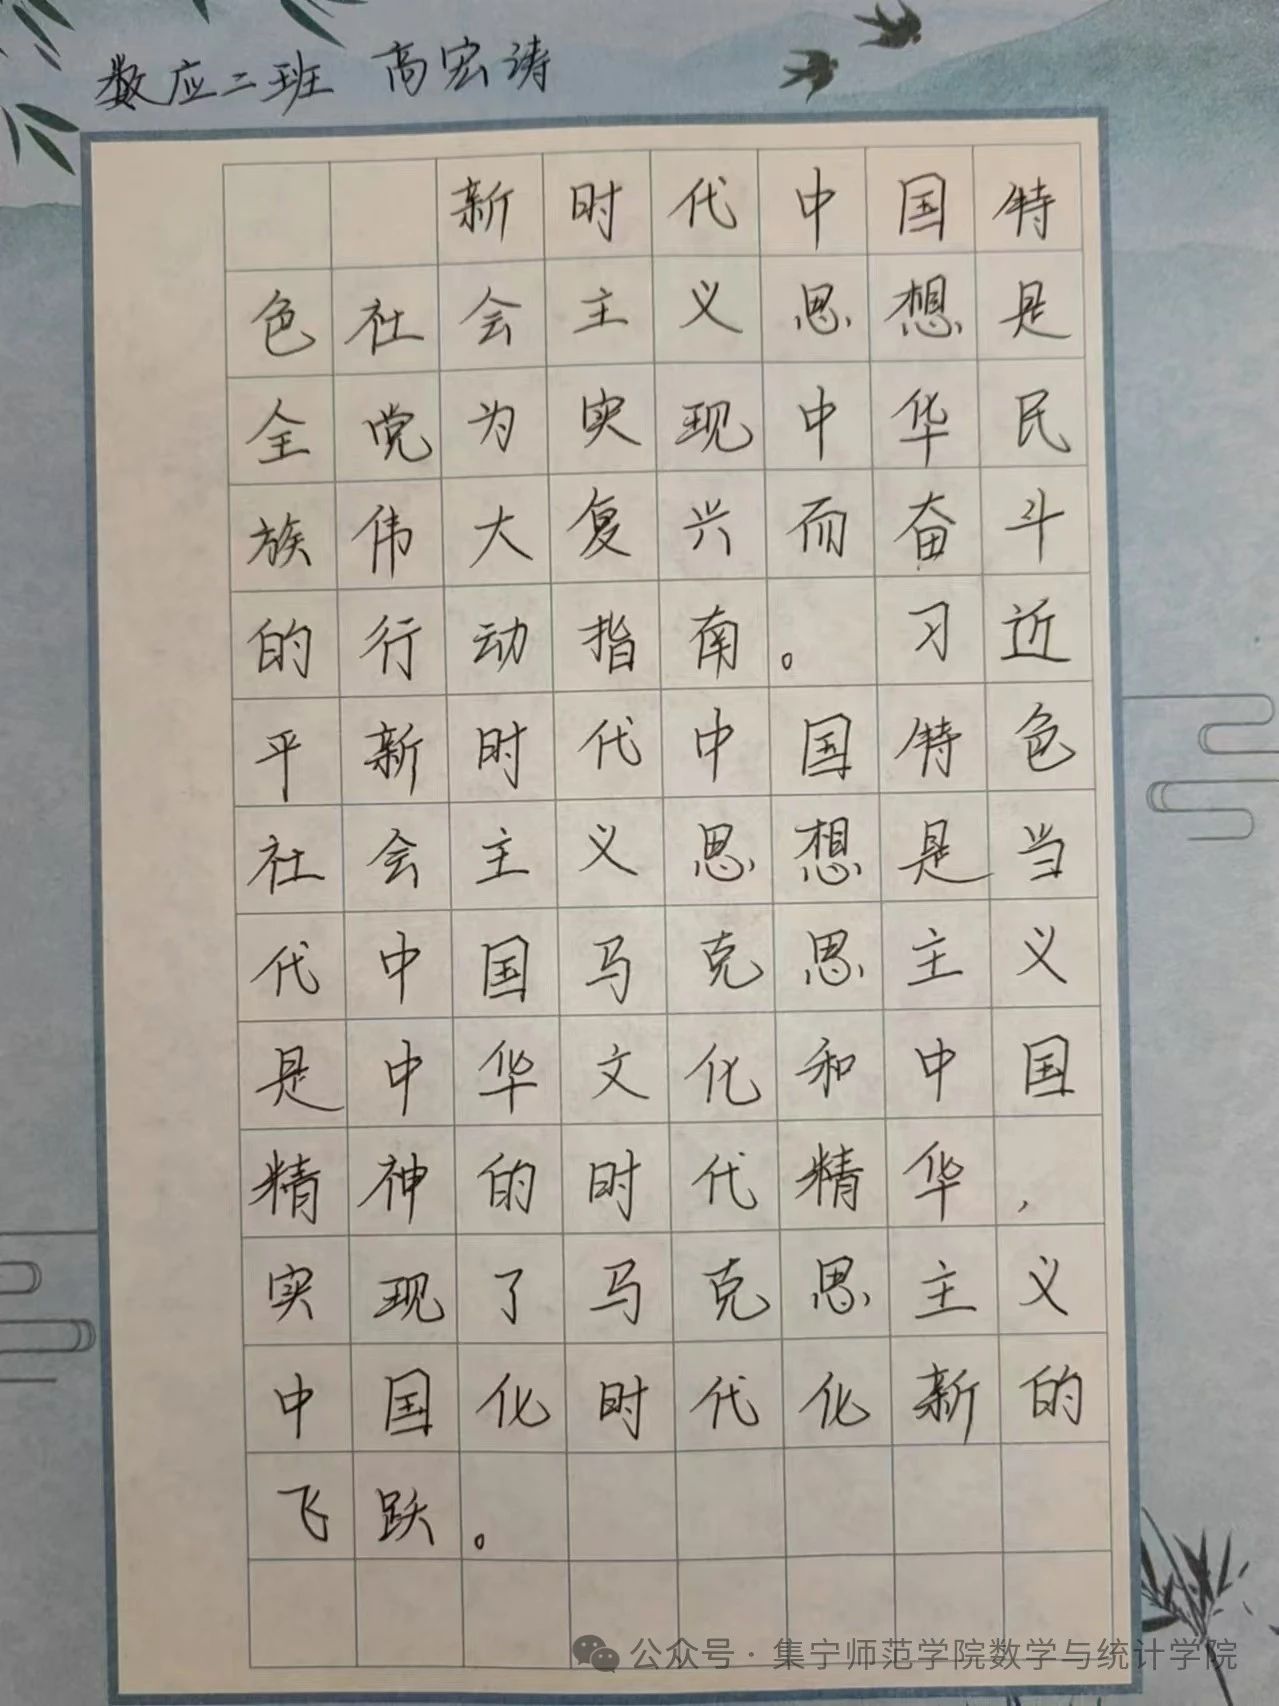 数应二班 高宏涛
新时代中国特
色社会主义思想是
全党为实现中华民
族伟大复兴而奋斗
的行动指南。习近
平新时代中国特色
社会主义思想是当
代中国马克思主义
是中华文化和中国
精神的时代精华，
实现了马克思主义
中国化时代化新的
飞跃。
公众号·集宁师范学院数学与统计学院